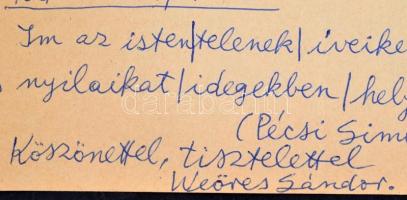 Im az isten/telenek/ íveike
nyilaikat/idegekben/hely
(Pécsi Sim
Köszönettel, tisztelettel
Weöres Sándor.
darabanth